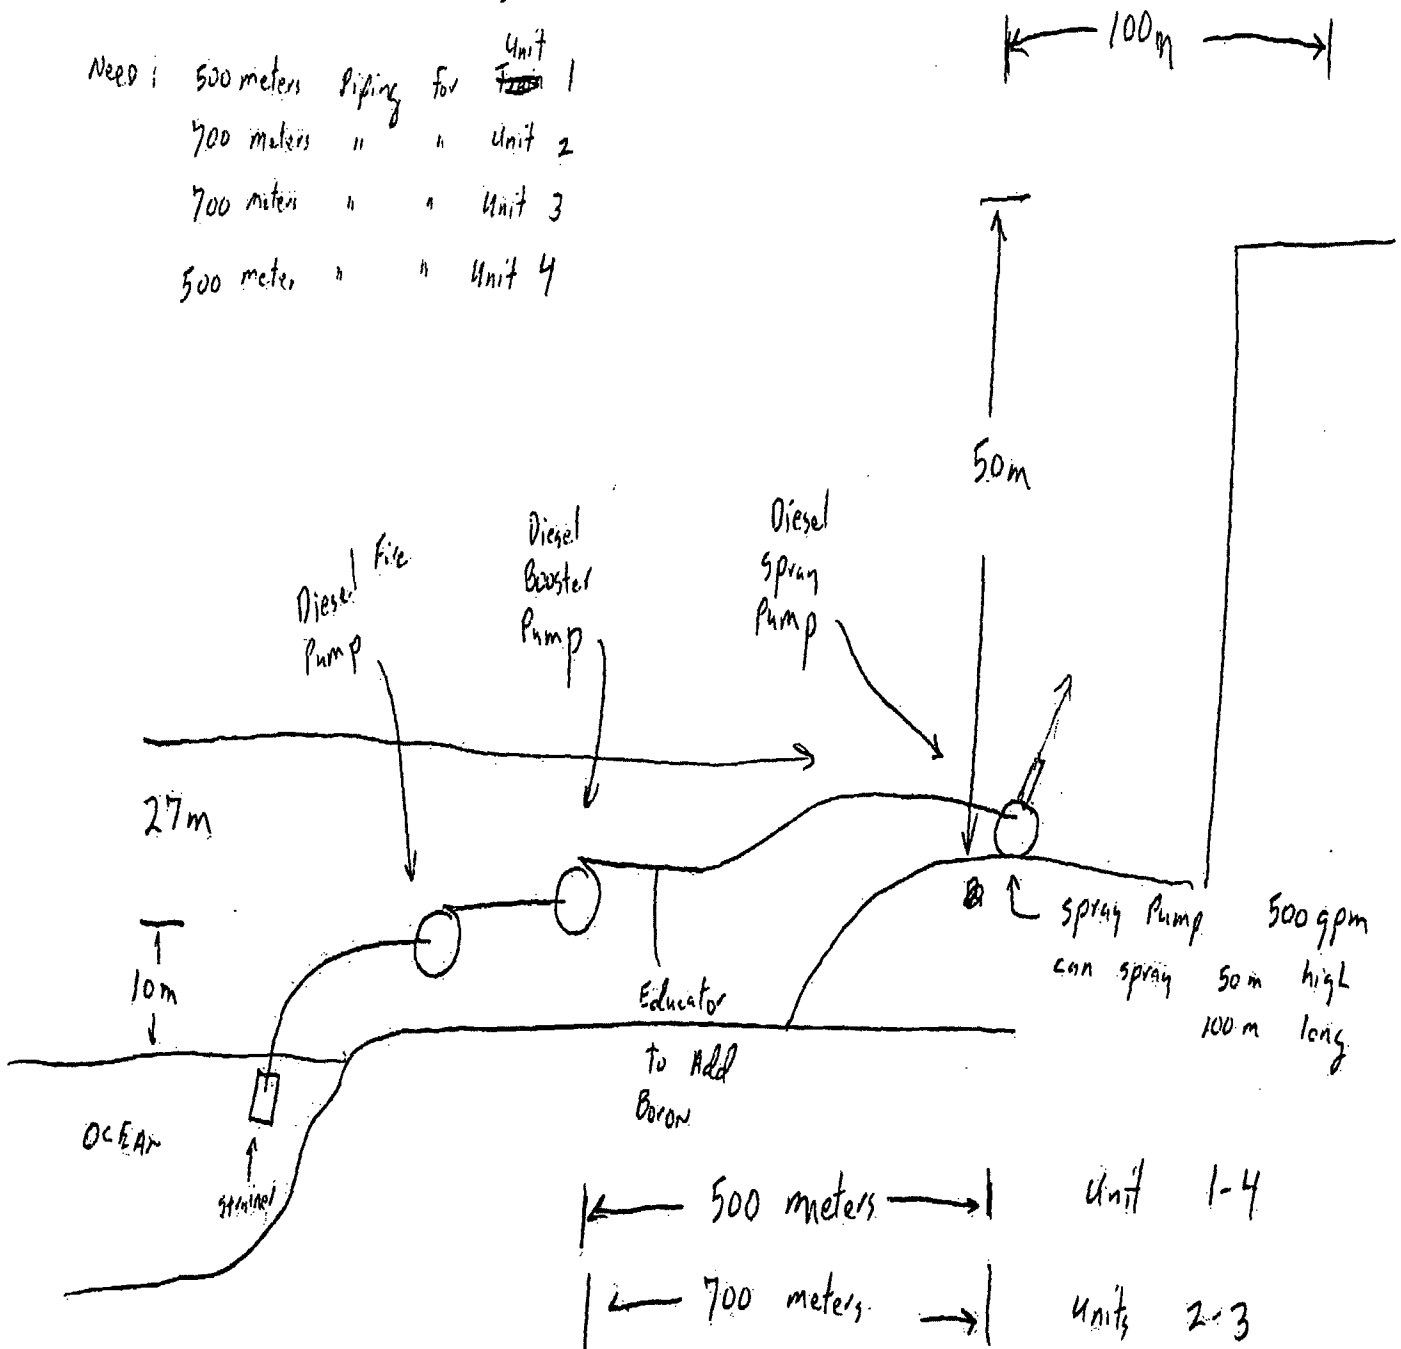 100m
Need: 500 meters Piping for Unit 1
700 meters " " Unit 2
700 meters " " Unit 3
500 meter " " Unit 4
50m
Diesel Fire
Pump
Diesel
Booster
Pump
Diesel
Spray
Pump
27m
10m
OCEAN
Strainer
Educator
to Add
Boron
Spray Pump 500 gpm
can spray 50m high
100m long
500 meters Unit 1-4
700 meters Units 2-3